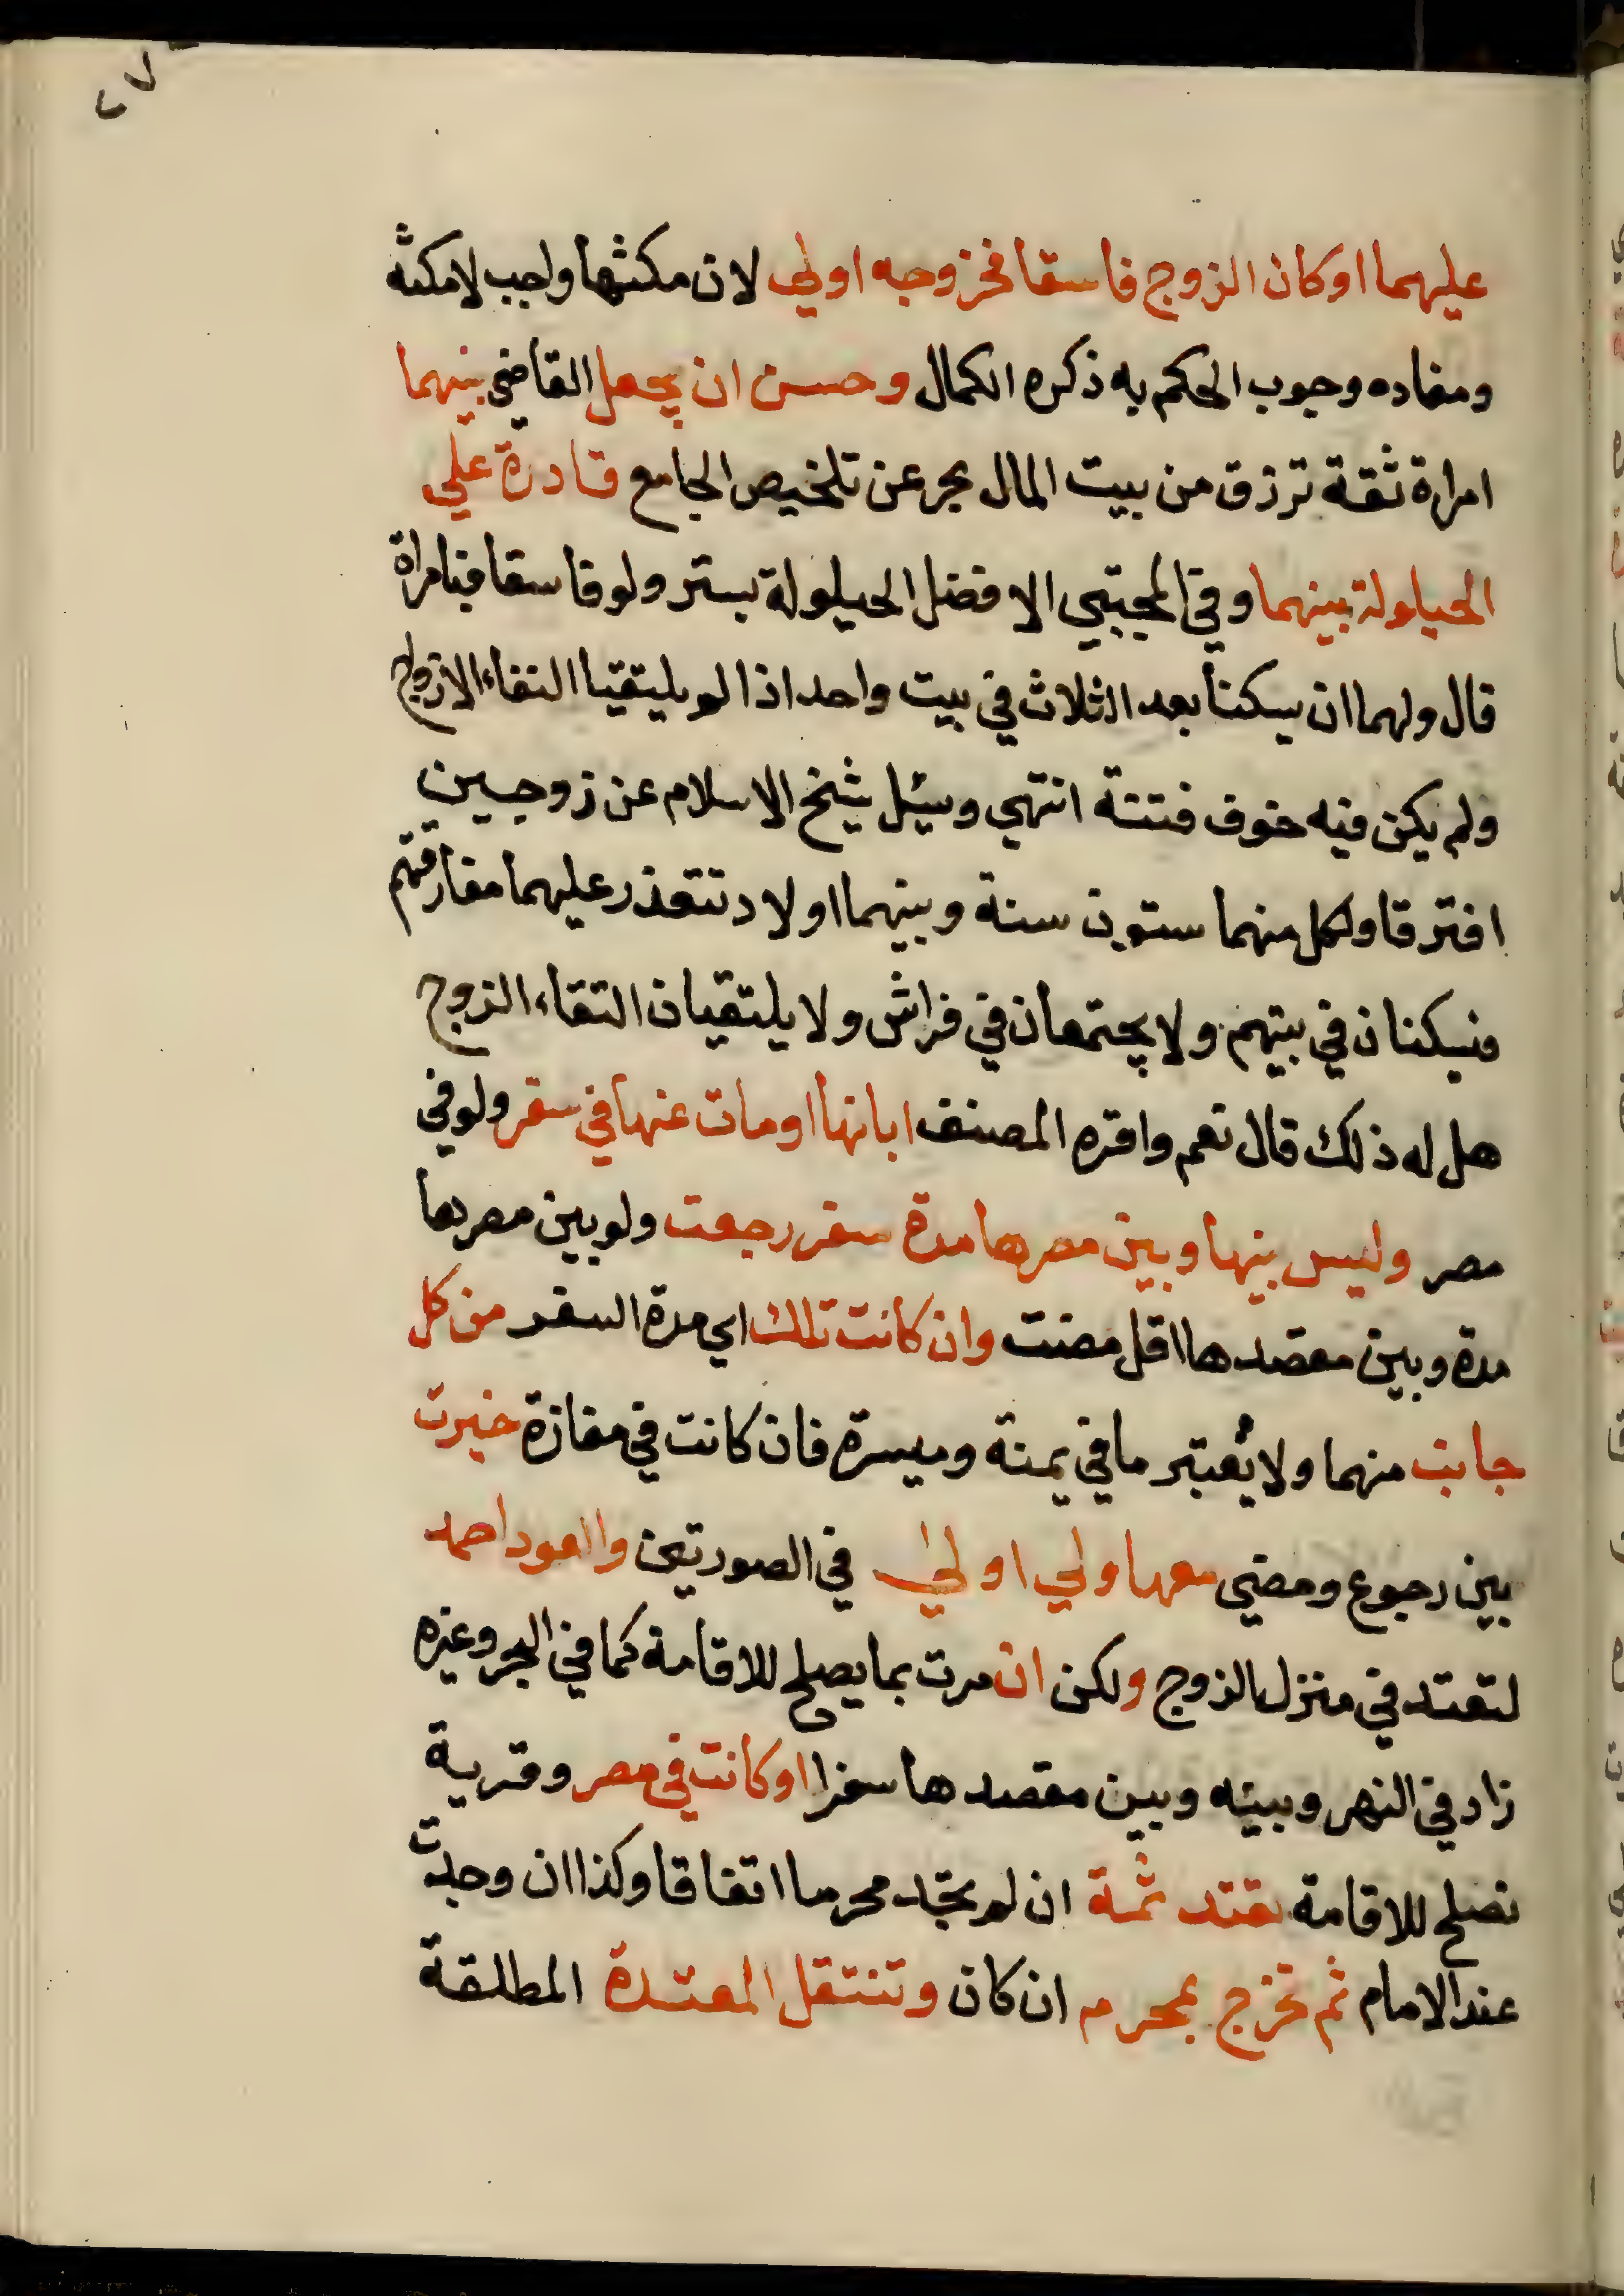 ٢٧
عليهما او كان الزوج فاسقا فخروجه اولي لان مكثها واجب لا مكثه
ومفاده وجوب الحكم به ذكره الكمال وحسن ان يجعل القاضي بينهما
امراة ثقة ترزق من بيت المال بحر عن تلخيص الجامع قادرة علي
الحيلولة بينهما وفي المجتبي الافضل الحيلولة بستر ولو فاسقا فبامراة
قال ولهما ان يسكنا بعد الثلاث في بيت واحد اذا لم يلتقيا التقاء الازواج
ولم يكن فيه خوف فتنة انتهي وسئل شيخ الاسلام عن زوجين
افترقا ولكل منهما ستون سنة وبينهما اولاد تتعذر عليهما مفارقتهم
فيسكنان في بيتهم ولا يجتمعان في فراش ولا يلتقيان التقاء الزوج
هل له ذلك قال نعم واقره المصنف ابانها او مات عنها في سفر ولو في
مصر وليس بينها وبين مصرها مدة سفر رجعت ولو بين مصرها
مدة وبين مقصدها اقل مضت وان كانت تلك اي مدة السفر من كل
جانب منهما ولا يُعتبر ما في يمنة وميسرة فان كانت في مفازة خيرت
بين رجوع ومضي معها ولي اولي في الصورتين والعود احمد
لتعتد في منزل الزوج ولكن ان مرت بما يصلح للاقامة كما في البحر وغيره
زاد في النهر وبينه وبين مقصدها سفرا او كانت في مصر وقرية
تصلح للاقامة تعتد ثمة ان لم تجد محرما اتفاقا وكذا ان وجدت
عند الامام ثم تخرج بمحرم ان كان وتنتقل المعتدة المطلقة